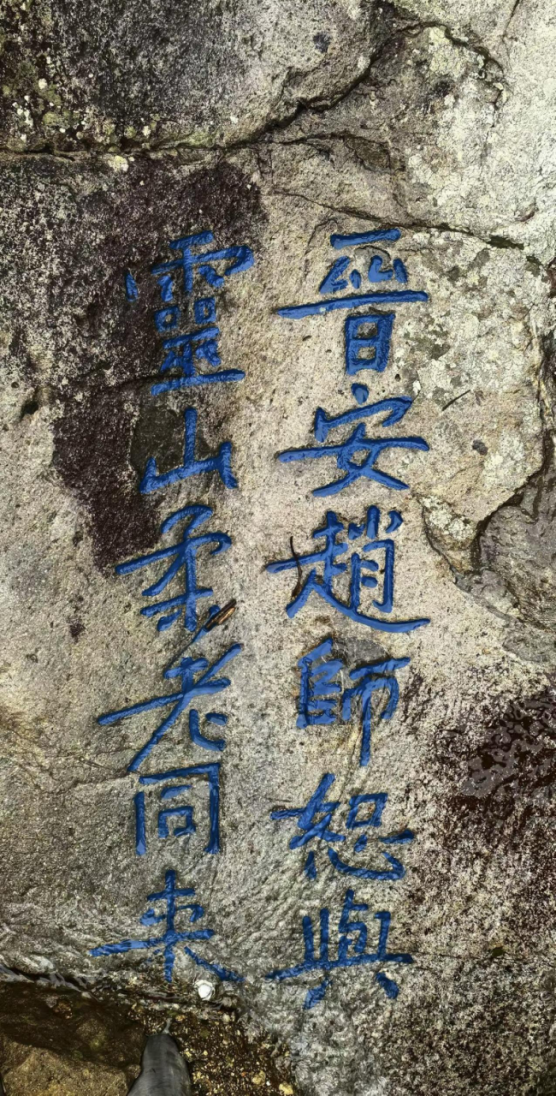 晉安趙師恕與
靈山柔老同来